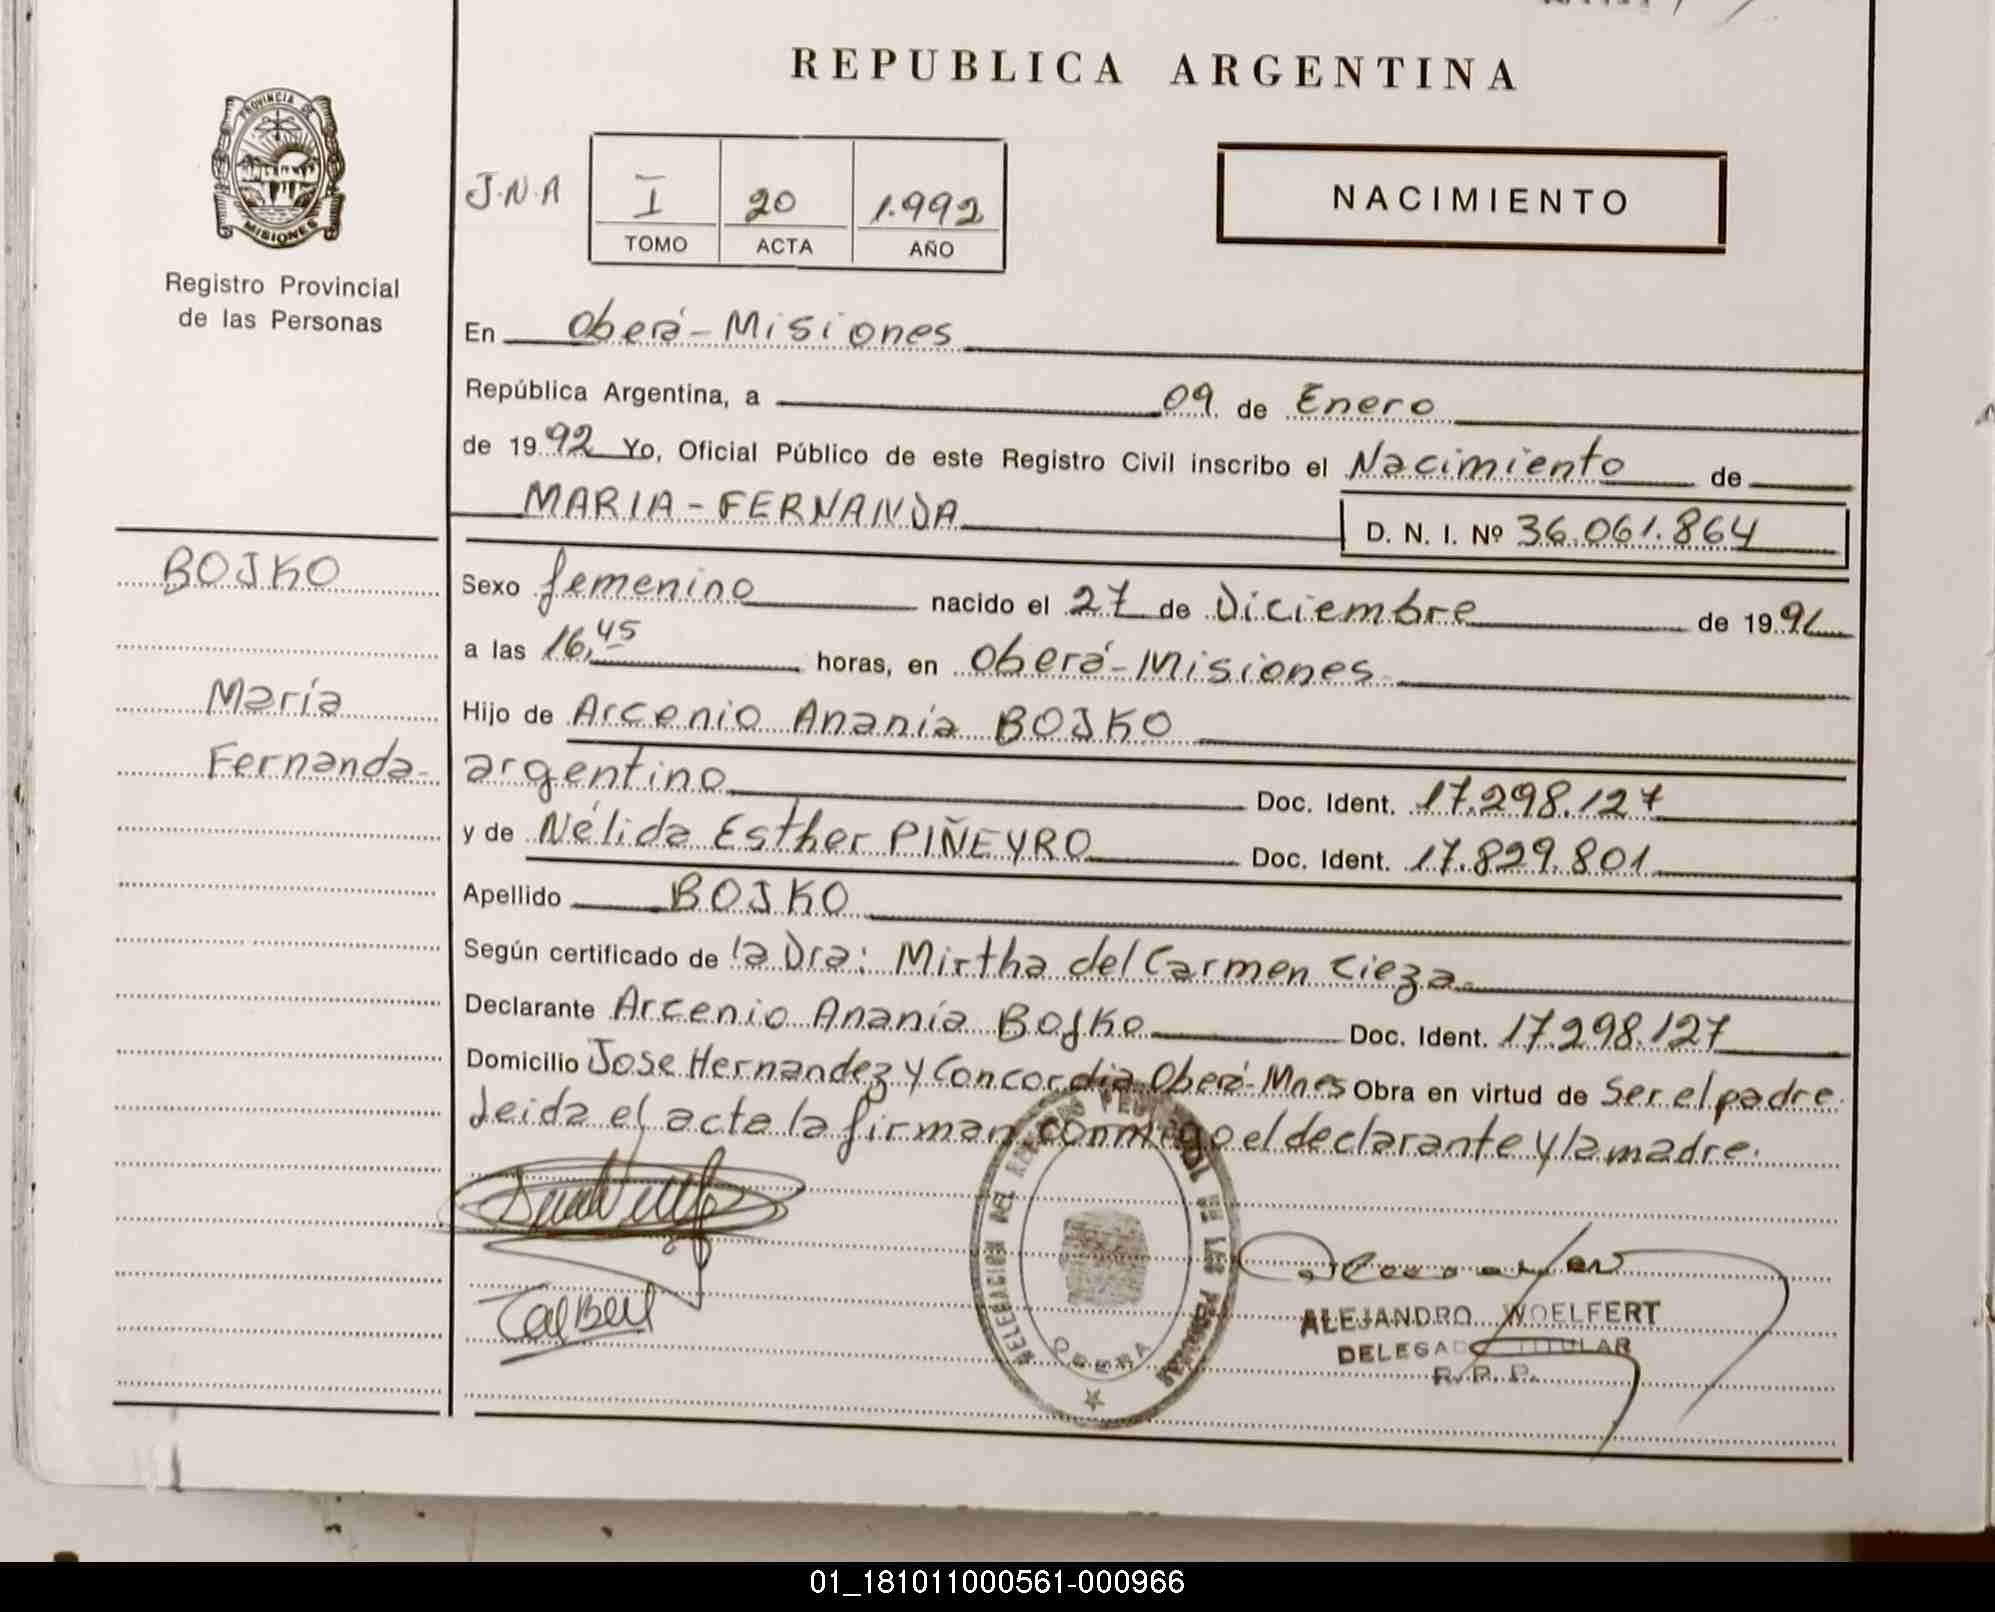 REPUBLICA ARGENTINA
PROVINCIA DE
MISIONES
Registro Provincial
de las Personas
J.N.A
I 20 1.992
TOMO ACTA AÑO
NACIMIENTO
En Oberá-Misiones
República Argentina, a 09 de Enero
de 1992 Yo, Oficial Público de este Registro Civil inscribo el Nacimiento de
MARIA-FERNANDA
D. N. I. Nº 36.061.864
BOJKO
María
Fernanda-
Sexo femenino nacido el 27 de Diciembre de 1991
a las 16,45 horas, en Oberá-Misiones
Hijo de Arcenio Ananía BOJKO
argentino Doc. Ident. 17.298.127
y de Nélida Esther PIÑEYRO Doc. Ident. 17.829.801
Apellido BOJKO
Según certificado de la Dra: Mirtha del Carmen Cieza
Declarante Arcenio Ananía BOJKO Doc. Ident. 17.298.127
Domicilio Jose Hernandez y Concordia Oberá-Mnes Obra en virtud de Ser el padre.
Leida el acta la firman conmigo el declarante y la madre.
OBERA
ALEJANDRO WOELFERT
DELEGADO TITULAR
R. P. P.
01_181011000561-000966